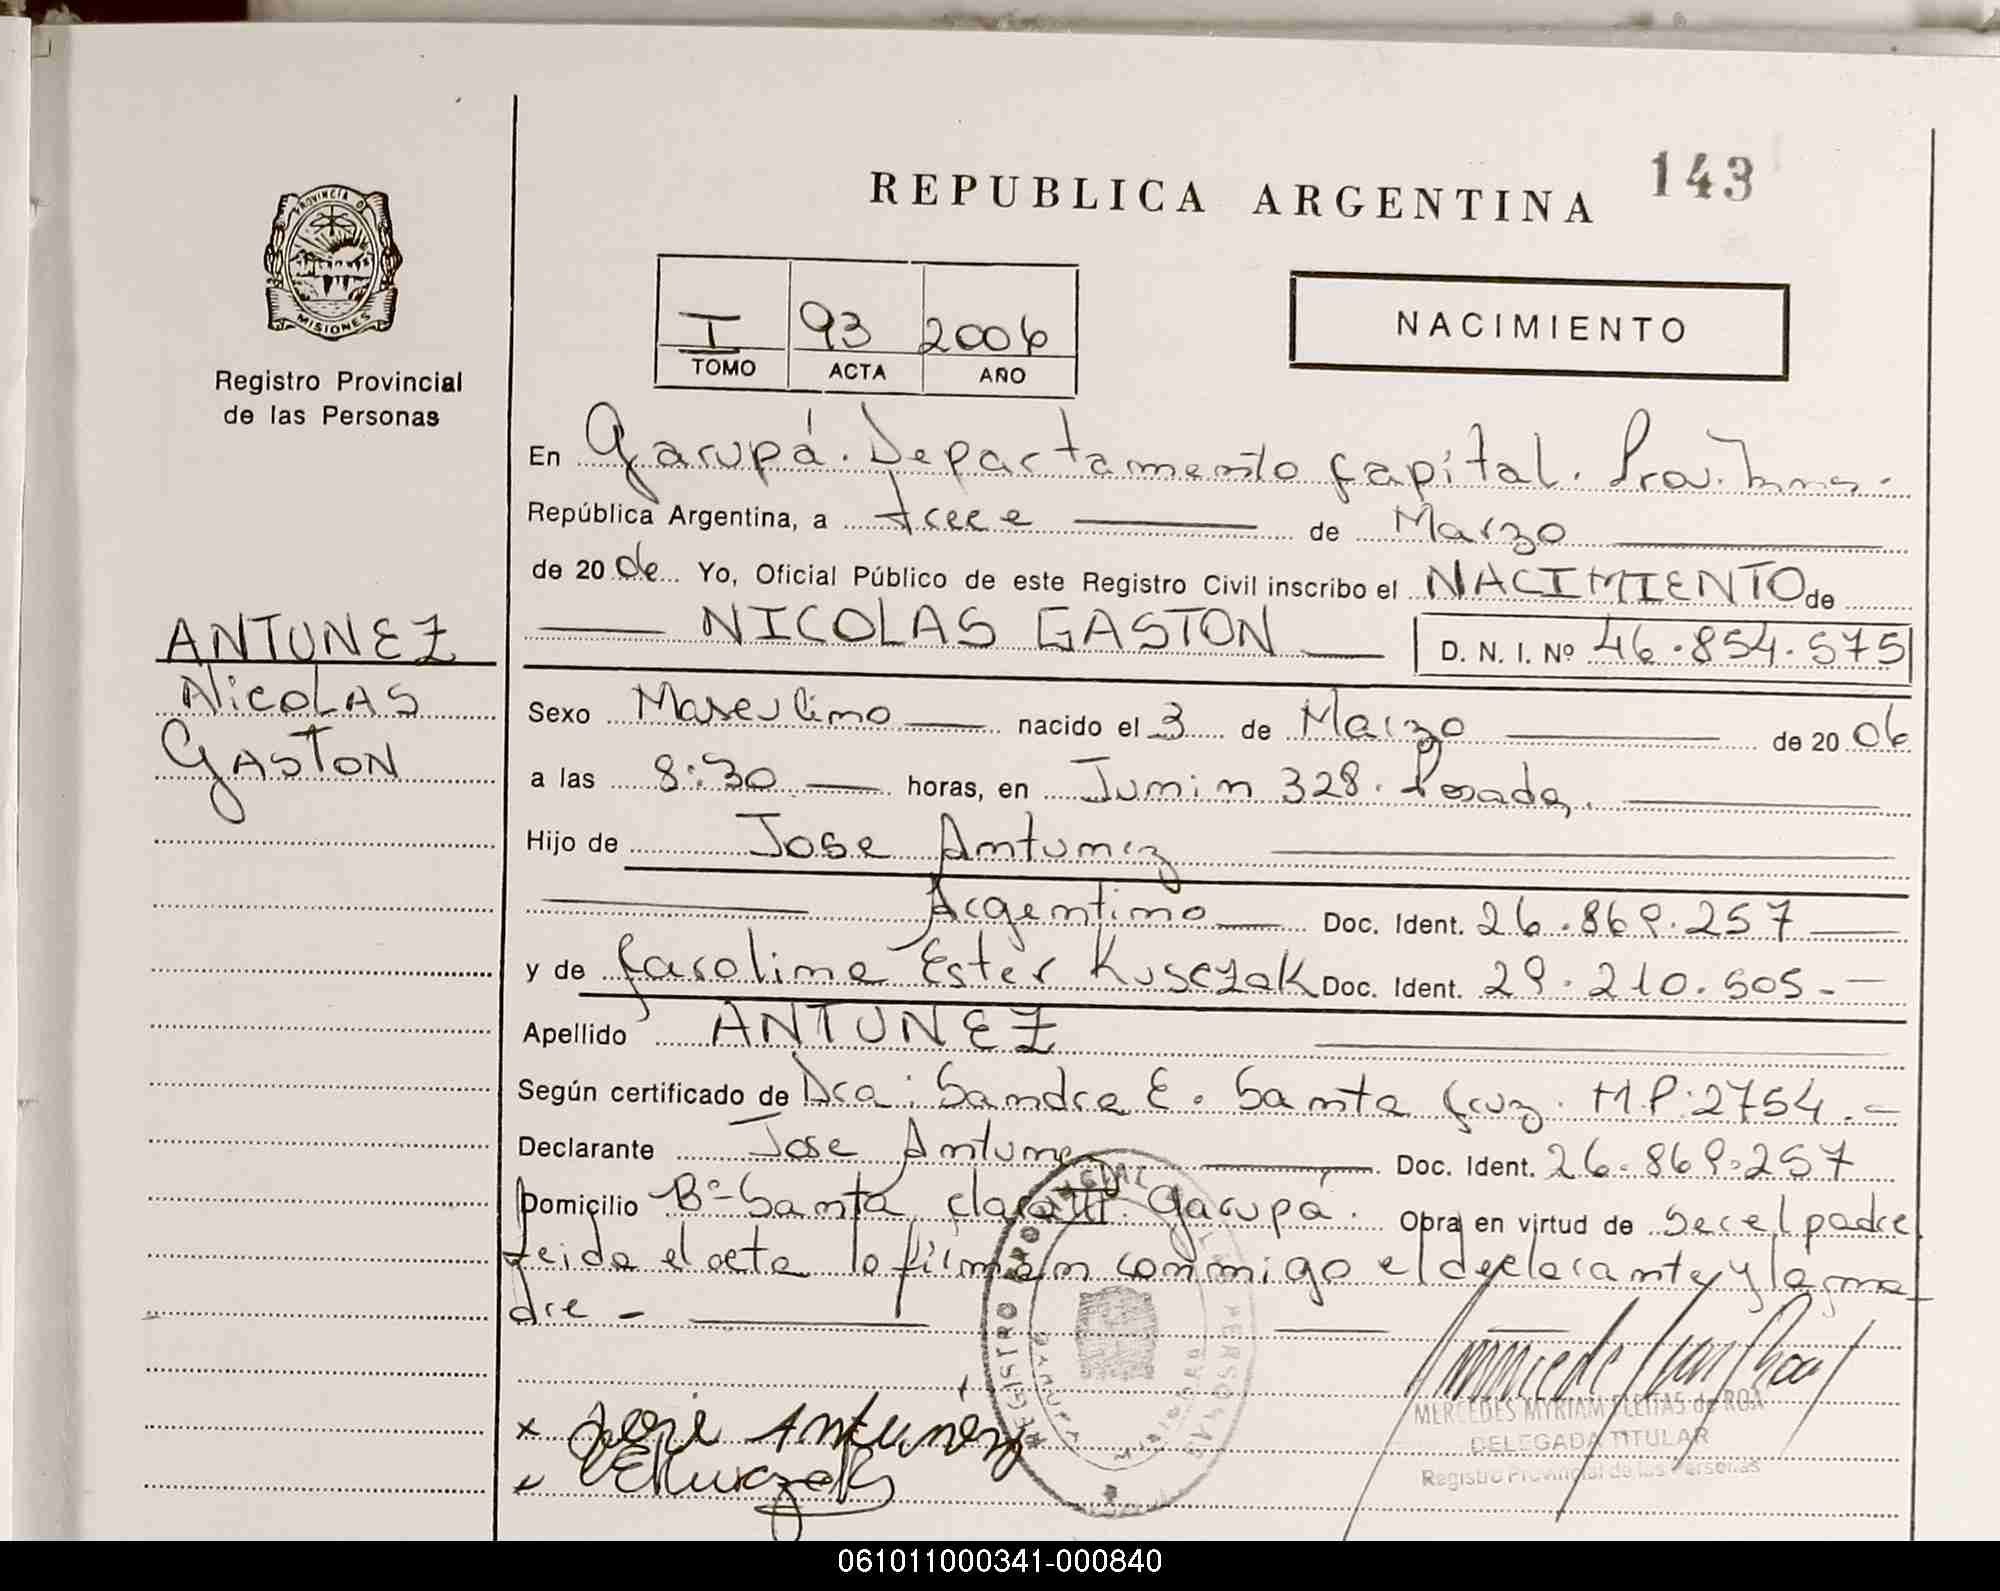 143
REPUBLICA ARGENTINA
PROVINCIA D
MISIONES
Registro Provincial
de las Personas
I 93 2006
TOMO ACTA AÑO
NACIMIENTO
En Garupá. Departamento Capital. Prov. Mnes.
República Argentina, a trece de Marzo
de 20 de Yo, Oficial Público de este Registro Civil inscribo el NACIMIENTO de
NICOLAS GASTON D. N. I. Nº 46.854.575
ANTUNEZ
NicoLAS
GASTON
Sexo Masculino nacido el 3 de Marzo de 20 06
a las 8:30 horas, en Junin 328. Posadas.
Hijo de Jose Antunez
Argentino Doc. Ident. 26.869.257
y de Carolina Ester Kusczak Doc. Ident. 29.210.505.-
Apellido ANTUNEZ
Según certificado de Dra: Sandra E. Santa Cruz. M.P:2754.-
Declarante Jose Antunez Doc. Ident. 26.869.257
Domicilio Bº-Santa Clara III. Garupá. Obra en virtud de ser el padre
leida el acta la firman conmigo el declarante y la ma
dre -
x José Antunez
MERCEDES MYRIAM FLEITAS de ROA
DELEGADA TITULAR
Registro Provincial de las Personas
REGISTRO PROVINCIAL DE LAS PERSONAS
GARUPA MISIONES
061011000341-000840